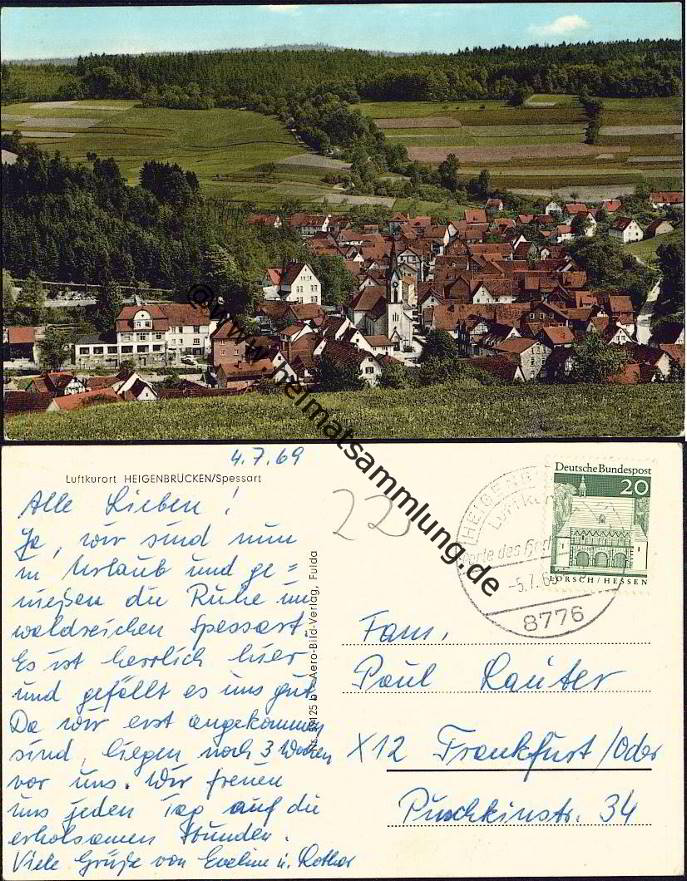 © www.heimatsammlung.de
4.7.69
Luftkurort HEIGENBRÜCKEN/Spessart
Alle Lieben!
Ja, wir sind nun
in Urlaub und ge=
nießen die Ruhe im
waldreichen Spessart.
Es ist herrlich hier
und gefällt es uns gut.
Da wir erst angekommen
sind, liegen noch 3 Wochen
vor uns. Wir freuen
uns jeden Tag auf die
erholsamen Stunden.
Viele Grüße von Eveline u. Lothar
Aero-Bild-Verlag, Fulda
22
Deutsche Bundespost
20
LORSCH/HESSEN
HEIGENB
Luftku
Pforte des
-5.7.6
8776
Fam.
Paul Rauter
X12 Frankfurt/Oder
Puschkinstr. 34